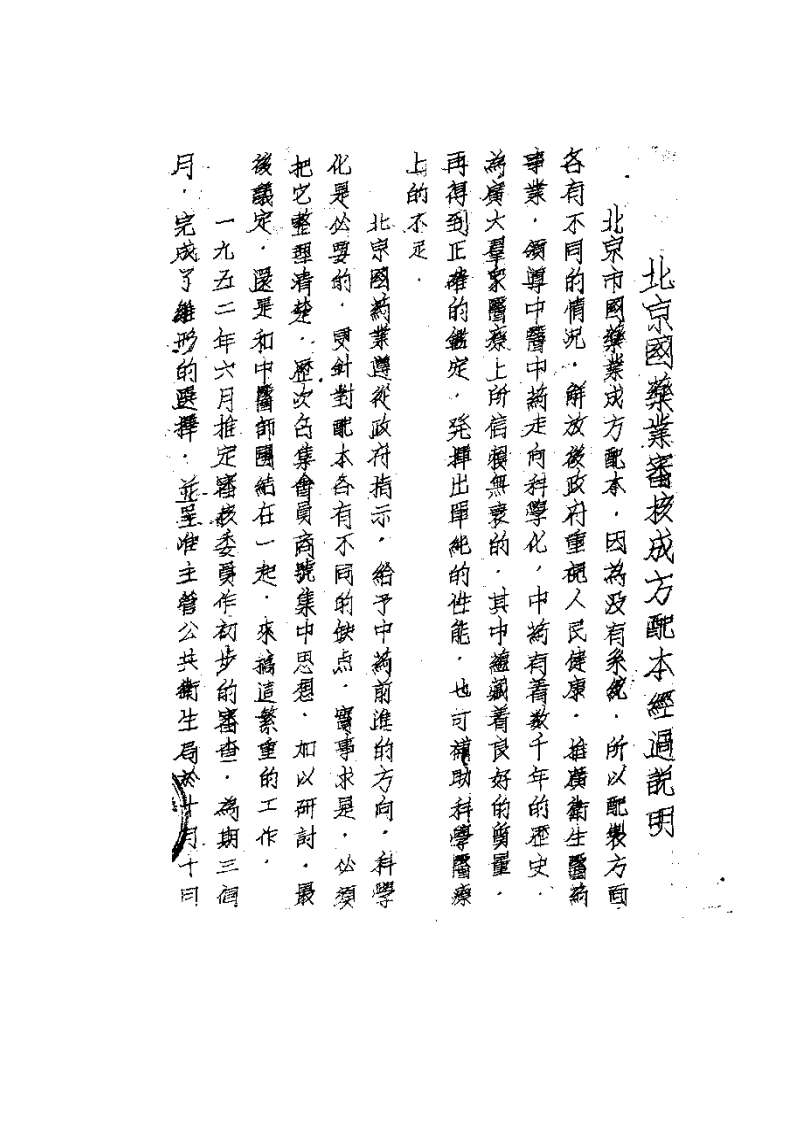 北京國藥業審核成方配本經過說明
北京市國藥業成方配本，因為没有系統，所以配製方面
各有不同的情況，解放後政府重視人民健康，推廣衛生醫葯
事業，領導中醫中葯走向科學化，中葯有着数千年的歷史，
為廣大羣眾醫療上所信賴無衰的，其中蘊藏着良好的質量，
再得到正確的鑑定，発揮出單純的性能，也可補助科學醫療
上的不足．
北京國葯業遵從政府指示，給予中葯前進的方向，科學
化是必要的，更針對配本各有不同的缺点，實事求是，必須
把它整理清楚，歷次召集會員商號集中思想，加以研討，最
後議定，還是和中醫師團結在一起，來搞這繁重的工作，
一九五二年六月推定審核委員作初步的審查，為期三個
月，完成了雛形的選擇，並呈准主管公共衛生局於十月十日